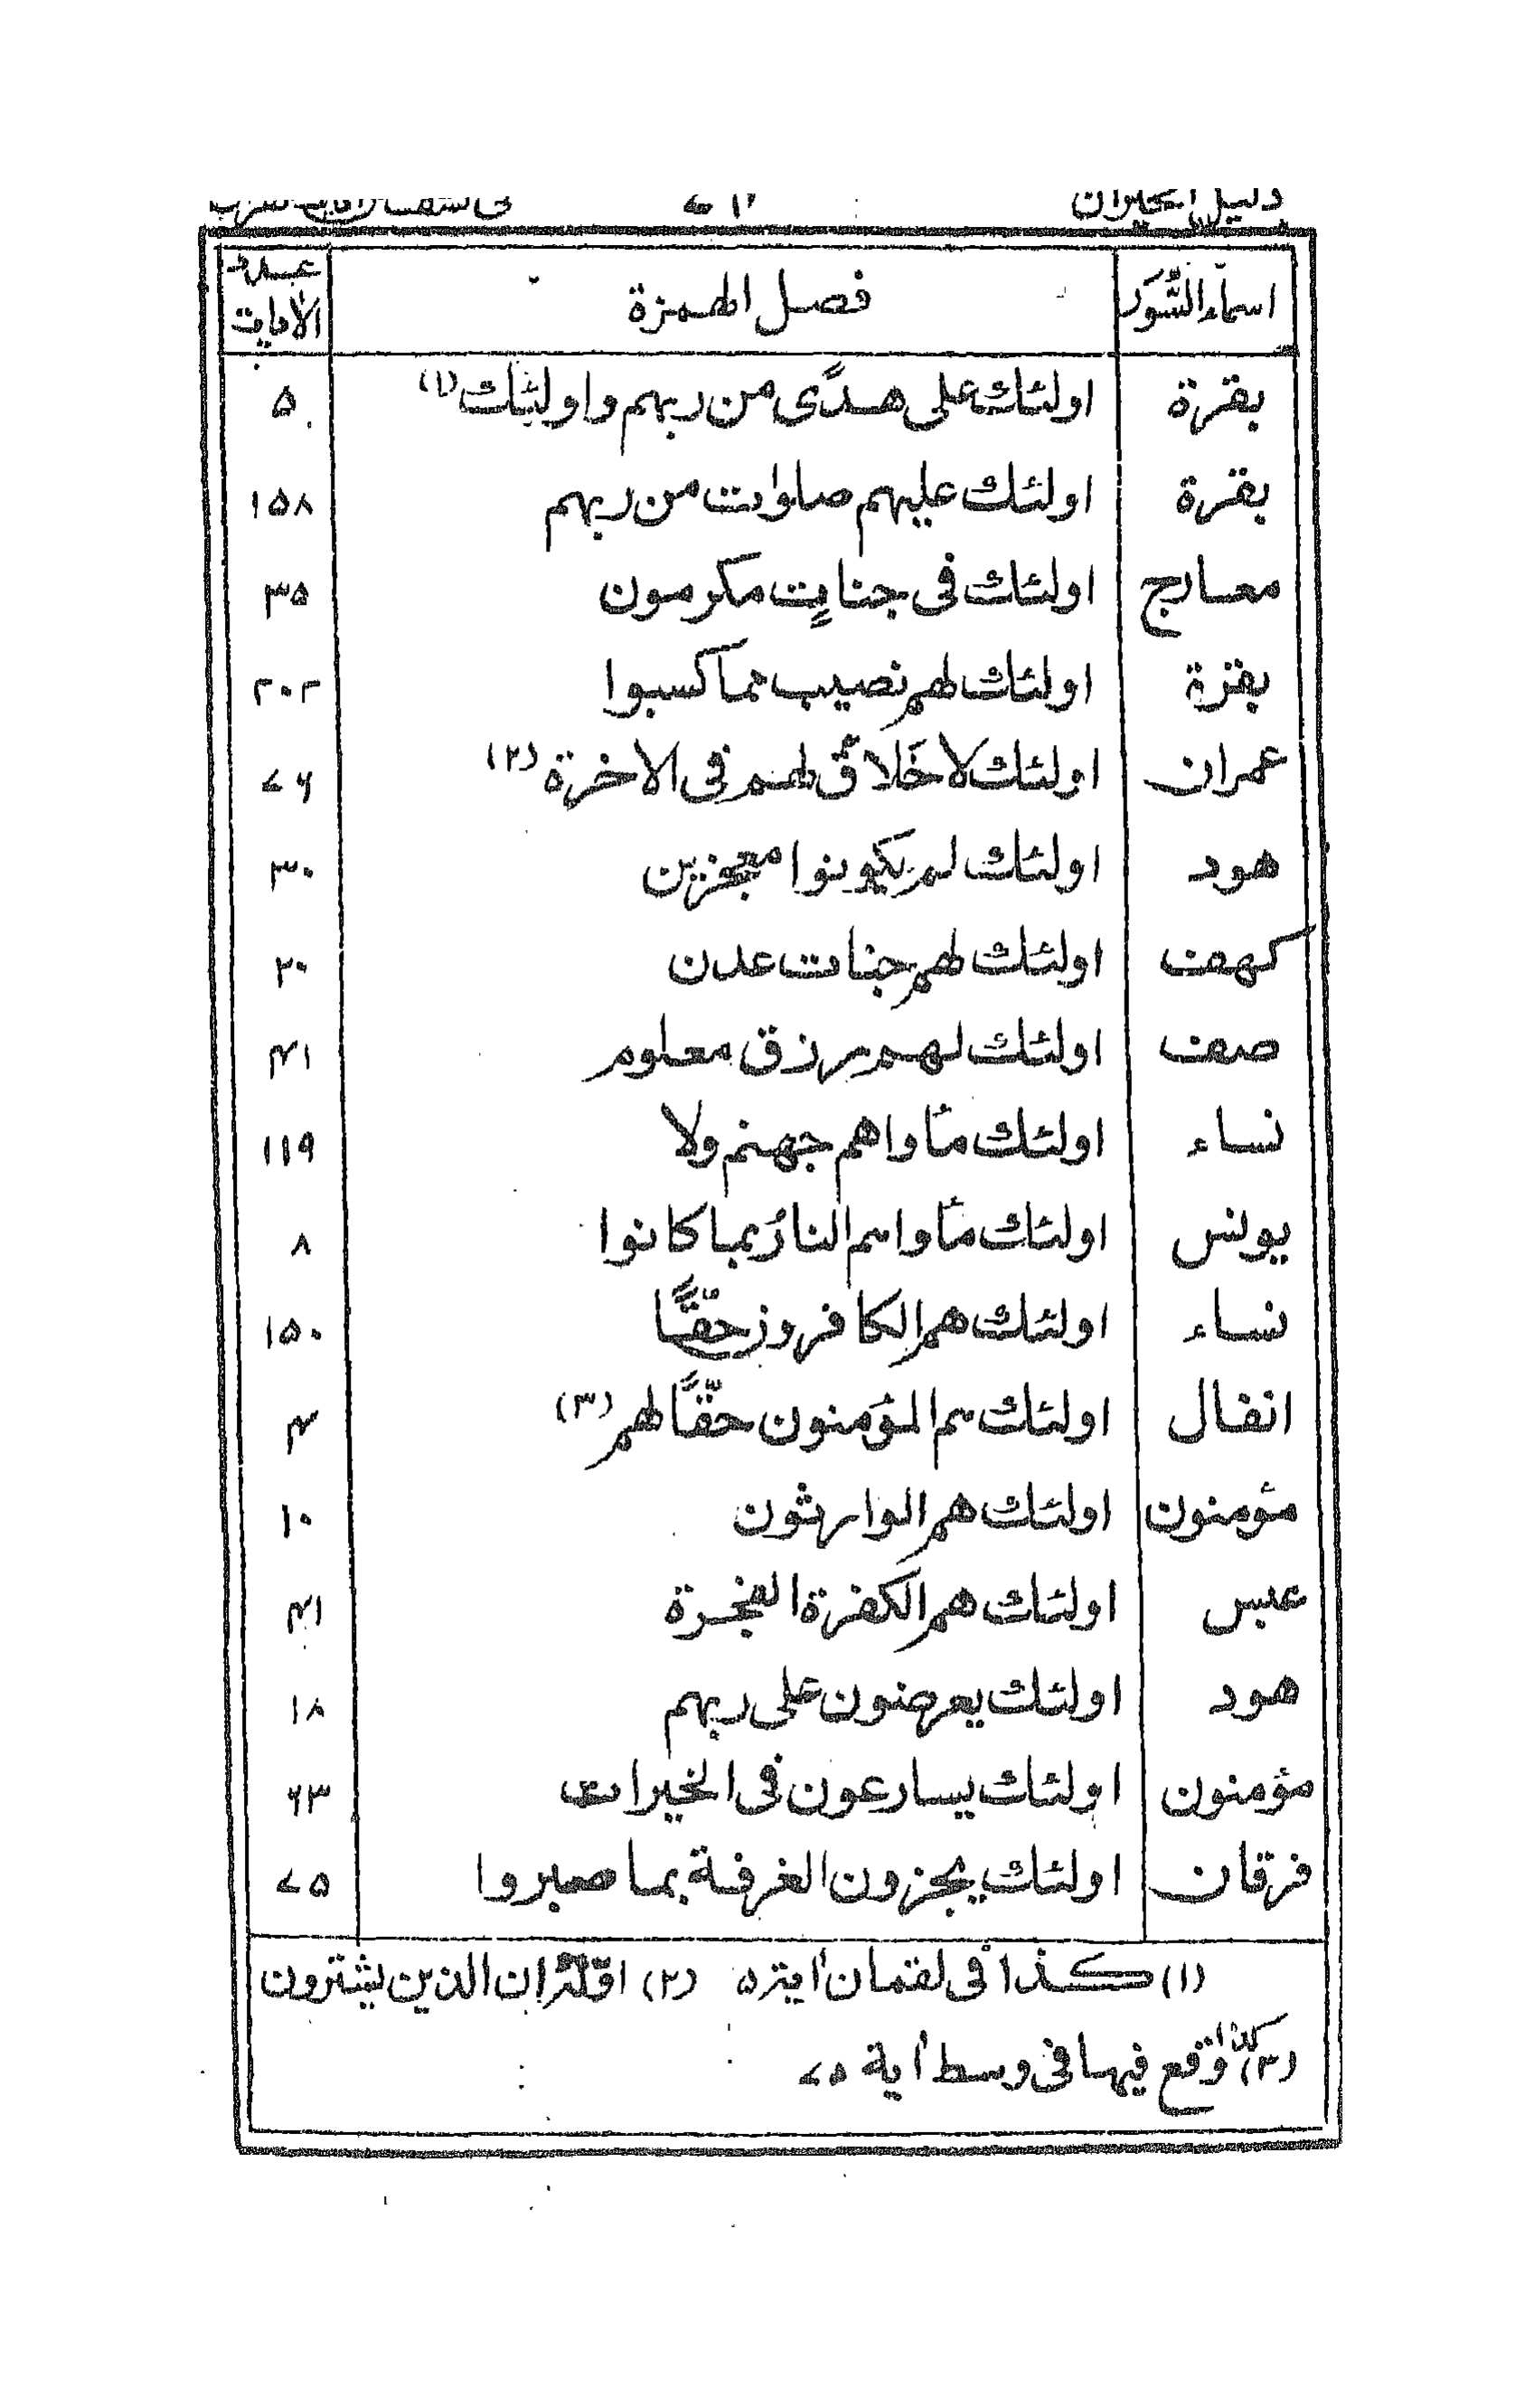 دليل الحيران
اسماء السُّوَر فصل الهمزة عدد الأيات
بقرة اولئك على هدًى من ربهم واولئك (۱) ۵
بقرة اولئك عليهم صلوات من ربهم ۱۵۸
معارج اولئك فى جناتٍ مكرمون ۳۵
بقرة اولئك لهم نصيب مما كسبوا ۲۰۲
عمران اولئك لا خَلاقَ لهم فى الاخرة (۲) ۷۶
هود اولئك لم يكونوا معجزين ۳۰
كهف اولئك لهم جنات عدن ۲۰
صفت اولئك لهم رزق معلوم ۴۱
نساء اولئك مأواهم جهنم ولا ۱۱۹
يونس اولئك مأواهم النارُ بما كانوا ۸
نساء اولئك هم الكافرون حقًّا ۱۵۰
انفال اولئك هم المؤمنون حقًّا لهم (۳) ۴
مؤمنون اولئك هم الوارثون ۱۰
عبس اولئك هم الكفرة الفجرة ۴۱
هود اولئك يعرضون على ربهم ۱۸
مؤمنون اولئك يسارعون فى الخيرات ۶۳
فرقان اولئك يجزون الغرفة بما صبروا ۷۵
(۱) كذا فى لقمان أية ۵ (۲) اوّله ان الذين يشترون
(۳) كذا وقع فيها فى وسط أية ۷۵